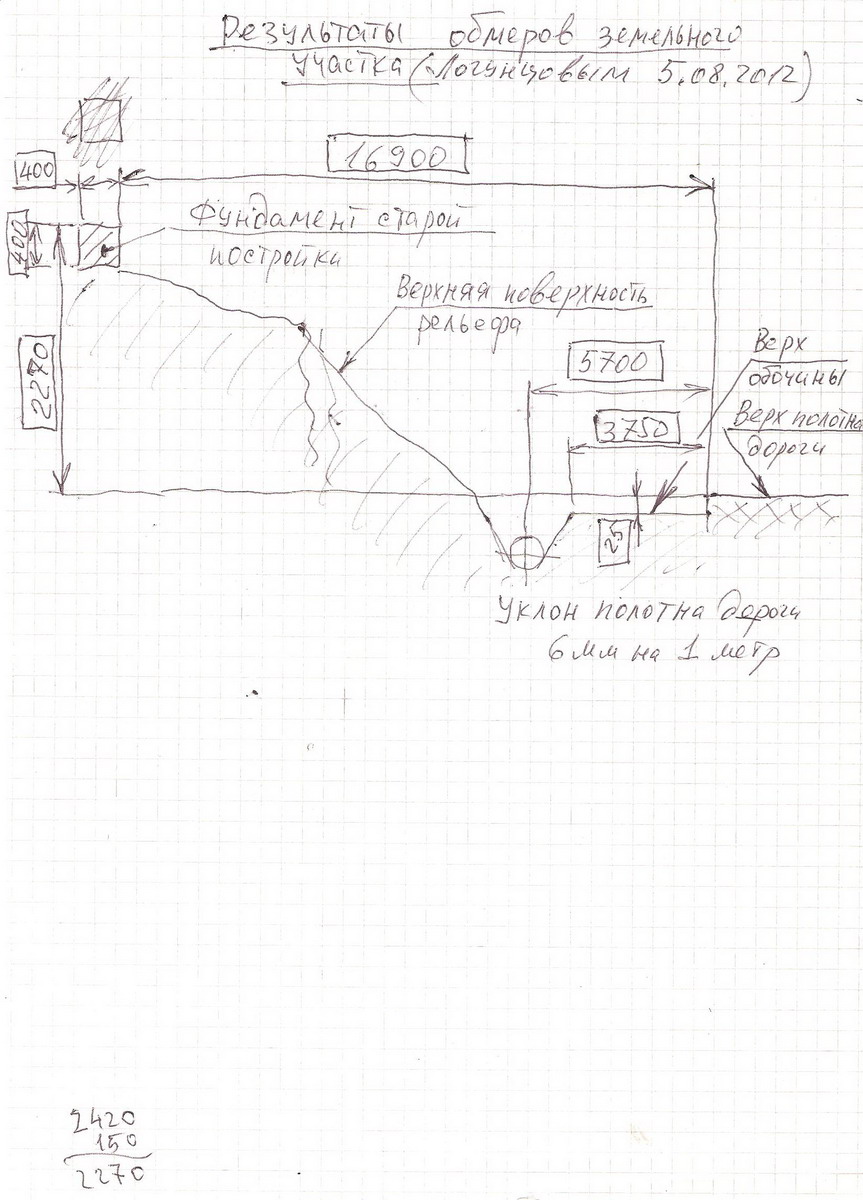 Результаты обмеров земельного
участка (Логунцовым 5.08.2012)
16900
400
400
Фундамент старой
постройки
Верхняя поверхность
рельефа
2270
5700
Верх
обочины
3750
Верх полотна
дороги
25
Уклон полотна дороги
6 мм на 1 метр
2420
150
2270